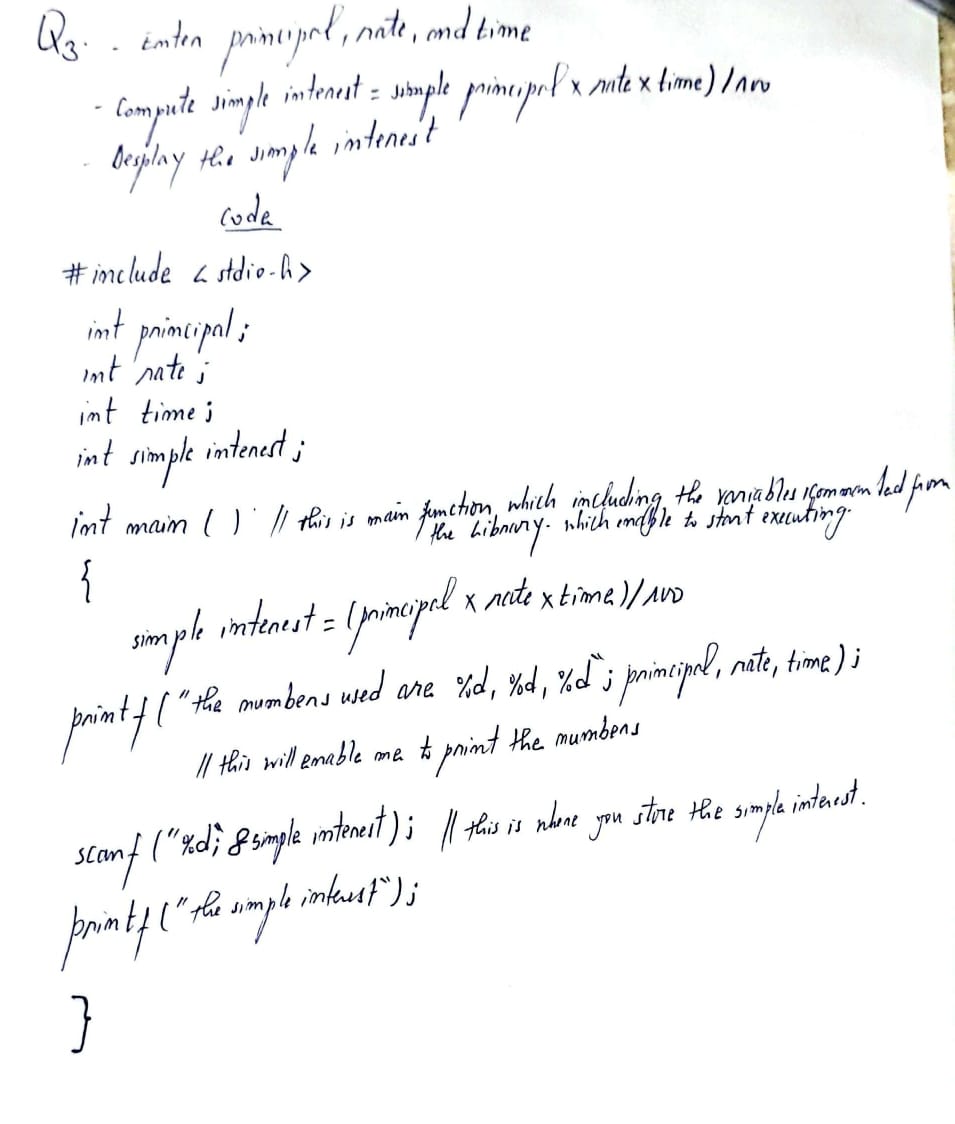 Q3. - Enter principal, rate, and time
- Compute simple interest = simple principal x rate x time) / 100
- Desplay the simple interest
code
#include < stdio.h>
int principal;
int rate;
int time;
int simple interest;
int main ( ) // this is main function, which including the variables from
the Library. which enable to start executing.
{
simple interest = (principal x rate x time)/100
printf ("the numbers used are %d, %d, %d"; principal, rate, time);
// this will enable me to print the numbers
scanf ("%d; &simple interest); // this is where you store the simple interest.
printf ("the simple interest");
}